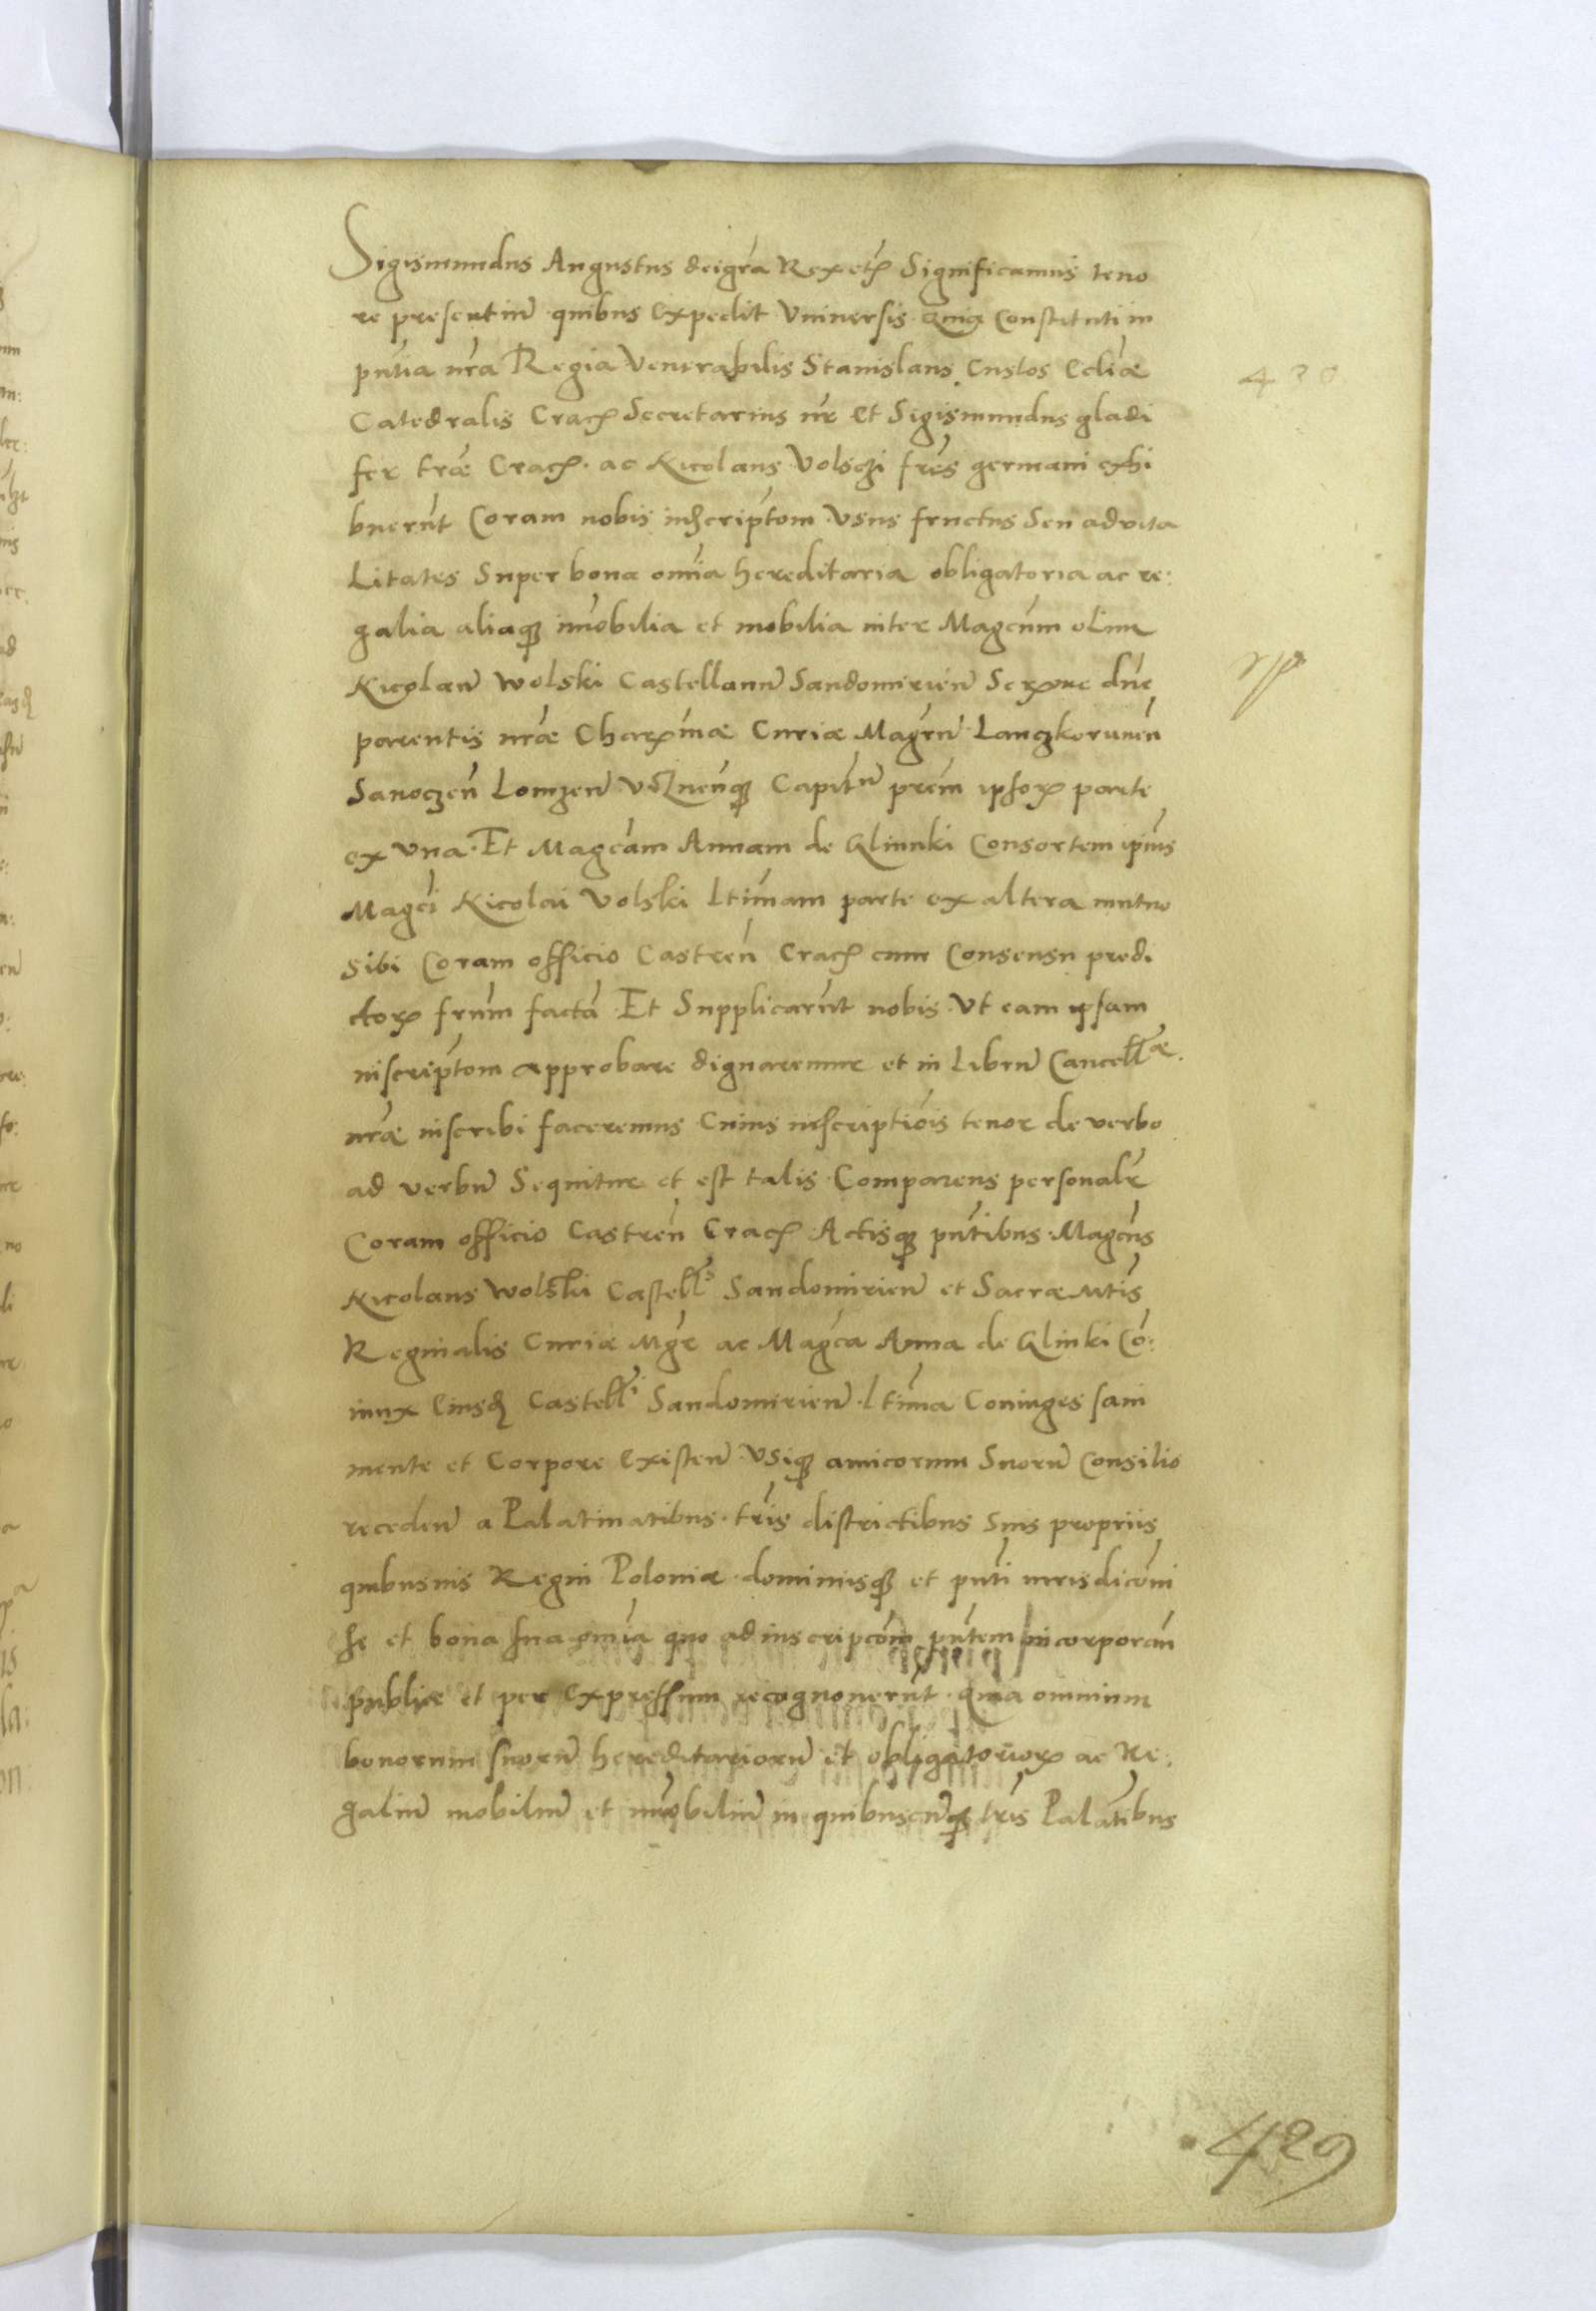 Sigismundus Augustus dei gr̃a Rex etc̃ Significamus teno
re presentiũ quibus Expedit Vniuersis quia Constituti in
pñtia nr̃a Regia Venerabilis Stanislaus Custos Eccliæ
Catedralis Crac̃ Secretarius nr̃ Et Sigismundus gladi
fer tr̃æ Crac̃. ac Nicolaus Volsczi fr̃es germani exhi
buerũt Coram nobis inscriptõm Vsus fructus Seu aduita
Litates Super bona om̃ia hereditaria obligatoria ac re:
galia aliaq́ȝ im̃obilia et mobilia inter Magcũm olim
Nicolaũ Wolski Castellanũ Sandomirieñ Serꝫme dñe
parentis nr̃æ Charꝫmæ Curiæ Magr̃ũ Lanczkorunẽn
Sanoczeñ Lomzeñ Viznen̄qȝ Capitñ pr̃em ipsorꝫ parte
ex Vna. Et Magcãm Annam de Glinnki Consortem ip̃ius
Magc̃i Nicolai Volski Ltimam parte ex altera mutuo
Sibi Coram officio Castreñ Crac̃ cum Consensu predi
ctorꝫ fr̃um factã Et Supplicarũt nobis Vt eam ipsam
inscriptõm approbare dignaremur et in Librũ Cancellæ
nr̃æ inscribi faceremus Cuius inscriptiõis tenor de verbo
ad verbũ Sequitur et est talis Comparens personalr̃
Coram officio Castreñ Crac̃ Actisqȝ pñtibus Magcũs
Nicolaus Wolski Castells Sandomirieñ et Sacræ Mtis
Reginalis Curiæ Mgr̃ ac Magc̃a Anna de Glinki Cõ:
iunx Eiusd̃ Castelli Sandomirieñ Ltima Coniuges sani
mente et Corpore Existeñ Vsiqȝ amicorum Suorũ Consilio
recedeñ a Palatinatibus tr̃is districtibus Suis propriis
quibusuis Regni Poloniæ dominiisqȝ et pñti iurisdicõni
se et bona sua om̃ia quo ad inscripcõm pñtem incorporañ
publice et per Expressum recognouerũt quia omnium
bonorum suorũ hereditariorũ et obligatoriorꝫ ac Re:
galiũ mobiliũ et im̃obiliũ in quibuscũqȝ tr̃is Palatĩbus
429